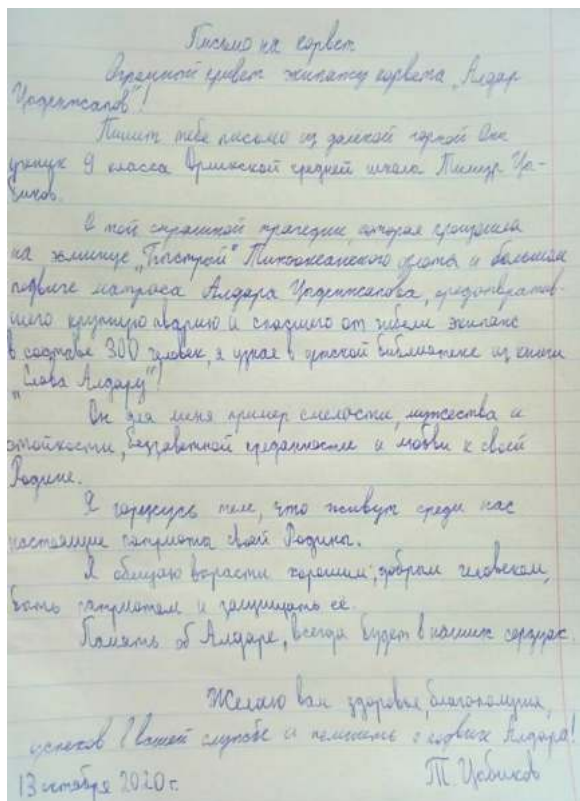 Письмо на корвет
Огромный привет экипажу корвета „Алдар
Цыденжапов"!
Пишет тебе письмо из далекой горной Оки
ученик 9 класса Орликской средней школы Тимур Цы-
биков.
О той страшной трагедии, которая произошла
на эсминце „Быстрый" Тихоокеанского флота и большом
подвиге матроса Алдара Цыденжапова, предотвратив-
шего крупную аварию и спасшего от гибели экипаж
в составе 300 человек, я узнал в детской библиотеке из книги
„Слава Алдару"!
Он для меня пример смелости, мужества и
стойкости, беззаветной преданности и любви к своей
Родине.
Я горжусь тем, что живут среди нас
настоящие патриоты своей Родины.
Я обещаю вырасти хорошим, добрым человеком,
быть патриотом и защищать её.
Память об Алдаре, всегда будет в наших сердцах.
Желаю вам здоровья, благополучия,
успехов в вашей службе и помнить о подвиге Алдара!
13 октября 2020 г. Т. Цыбиков